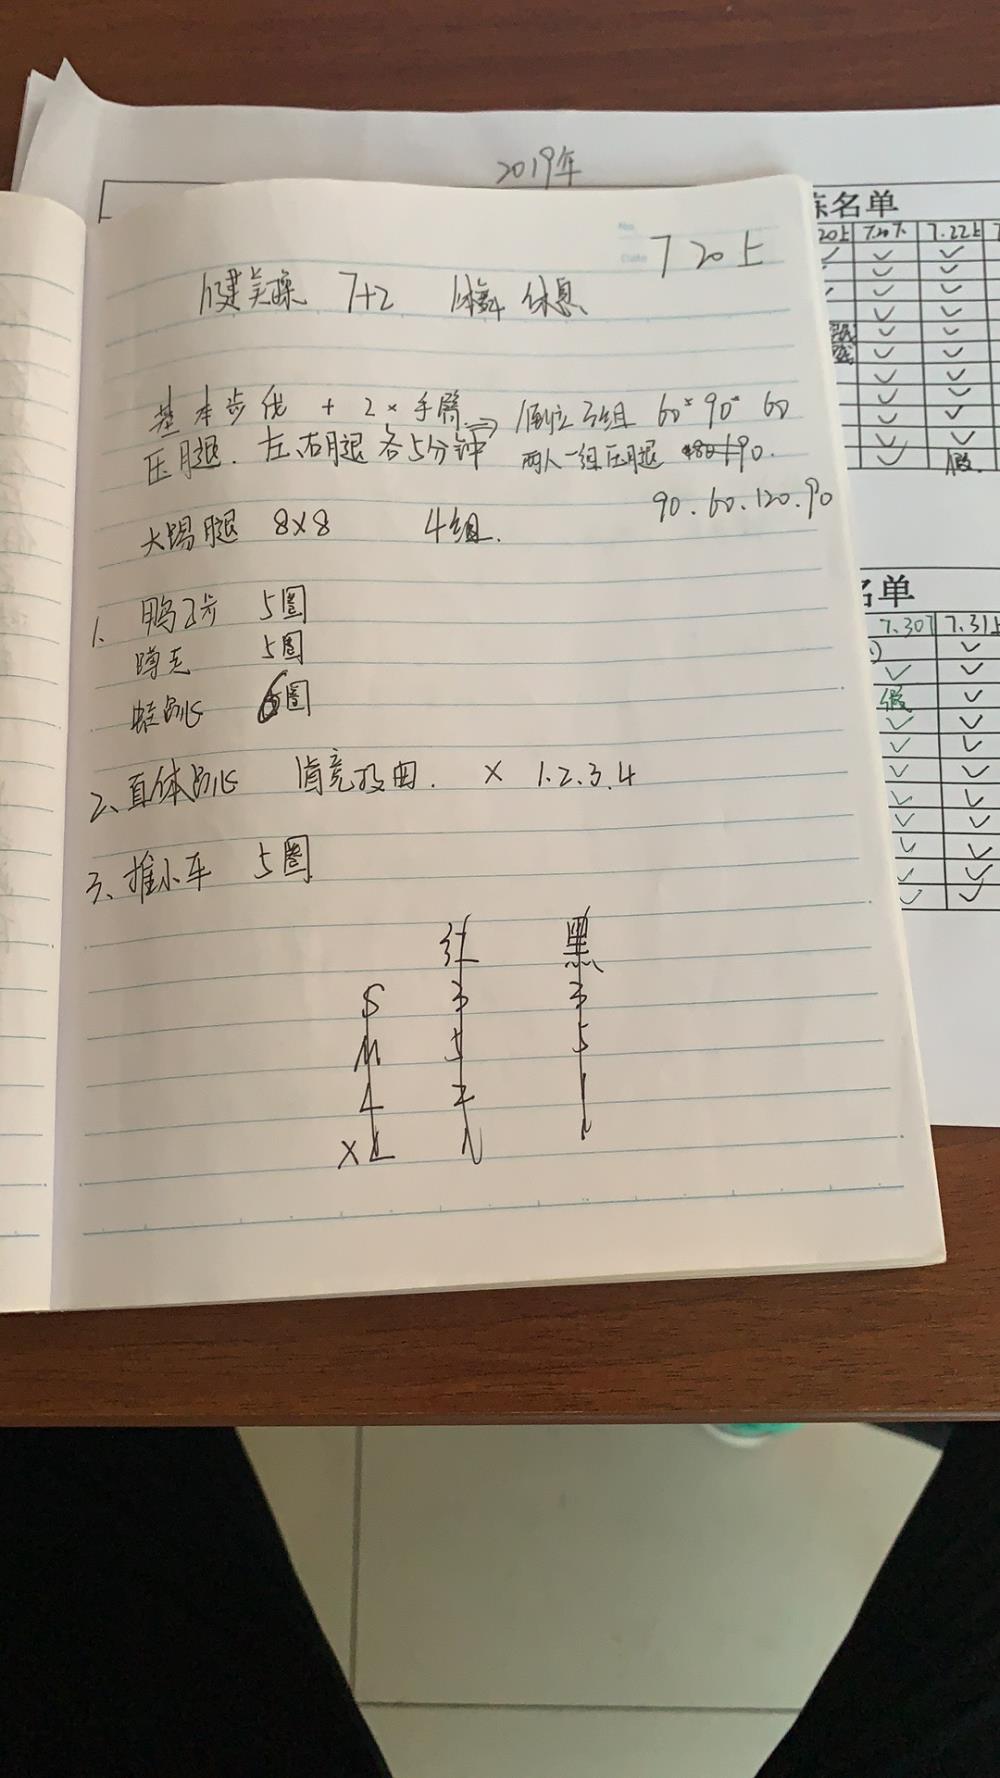 2019年
No.
Date
7 20上
健美操 7+2 体舞 休息
基本步伐 + 2×手臂 ⇒ 倒立3组 60" 90" 60
压腿. 左、右腿各5分钟 两人一组压腿 90.
90.60.120.90
大踢腿 8×8 4组.
1. 鸭子步 5圈
蹲走 5圈
蛙跳 6圈
2、直体跳 × 1.2.3.4
3、推小车 5圈
红 黑
S 3 3
M 5 5
L 2 1
XL 1
名单
20上 7.20下 7.22上
✓ ✓ ✓
假.
名单
7.30下 7.31上
✓ ✓
假